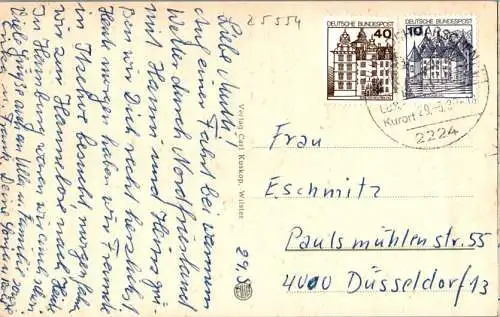 25554
Liebe Mutti!
Auf einer Fahrt bei warmem
Wetter durch Nordfriesland
mit Hanni und Heini grü-
ßen wir Dich recht herzlichst.
Heute morgen haben wir Freunde
in Itzehoe besucht, morgen fahren
wir zur Hannelore nach Heide
In Hamburg waren wir auch schon
Viele Grüße auch an Ulla u. Familie
29.5.
Verlag Carl Kuskop, Wilster
DEUTSCHE BUNDESPOST
40
DEUTSCHE BUNDESPOST
10
Luft-
Kurort 29.-5.
2224
Frau
E. Schmitz
Paulsmühlenstr. 55
4000 Düsseldorf 13